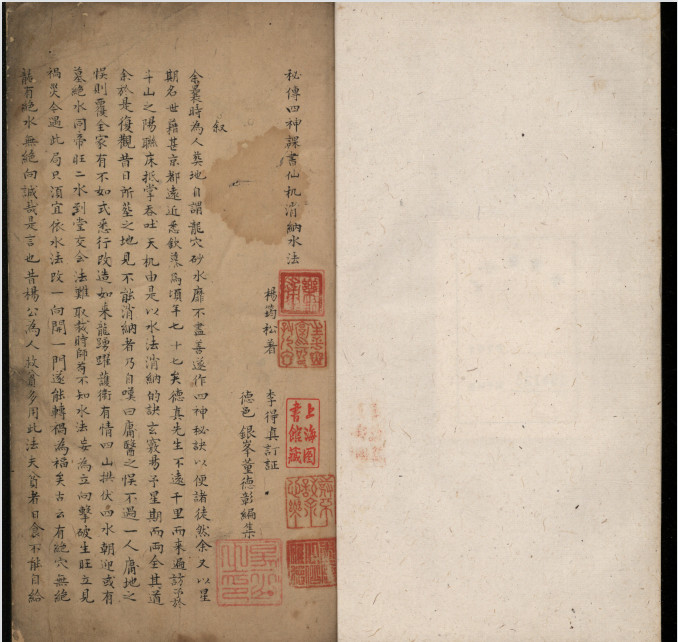 秘傳四神課書仙机消納水法
楊筠松著
李得真訂証
德邑銀峯董德彰編集
叙
余曩時為人奠地自謂龍穴砂水靡不盡善遂作四神秘訣以便諸徒然余又以星
期名世藉甚京都遠近悉欽慕焉頃年七十七矣德真先生不遠千里而來過訪
斗山之陽聯床抵掌吞吐天机由是以水法消納的訣玄竅與予星期而兩全其道
余於是復觀昔日所塟之地見不能消納者乃自嘆曰庸醫之悮不過一人庸地之
悮則覆全家有不如式悉行改造如來龍踴躍護衛有情四山拱伏畣水朝迎或有
墓絕水同帝旺二水到堂交會法難取裁時師有不知水法妄為立向擊破生旺立見
禍災今遇此局只須宜依水法改一向開一門遂能轉禍為福矣古云有絕穴無絕
龍有絕水無絕向誠哉是言也昔楊公為人救貧多用此法夫貧者日食不能自給
上海圖
書館藏